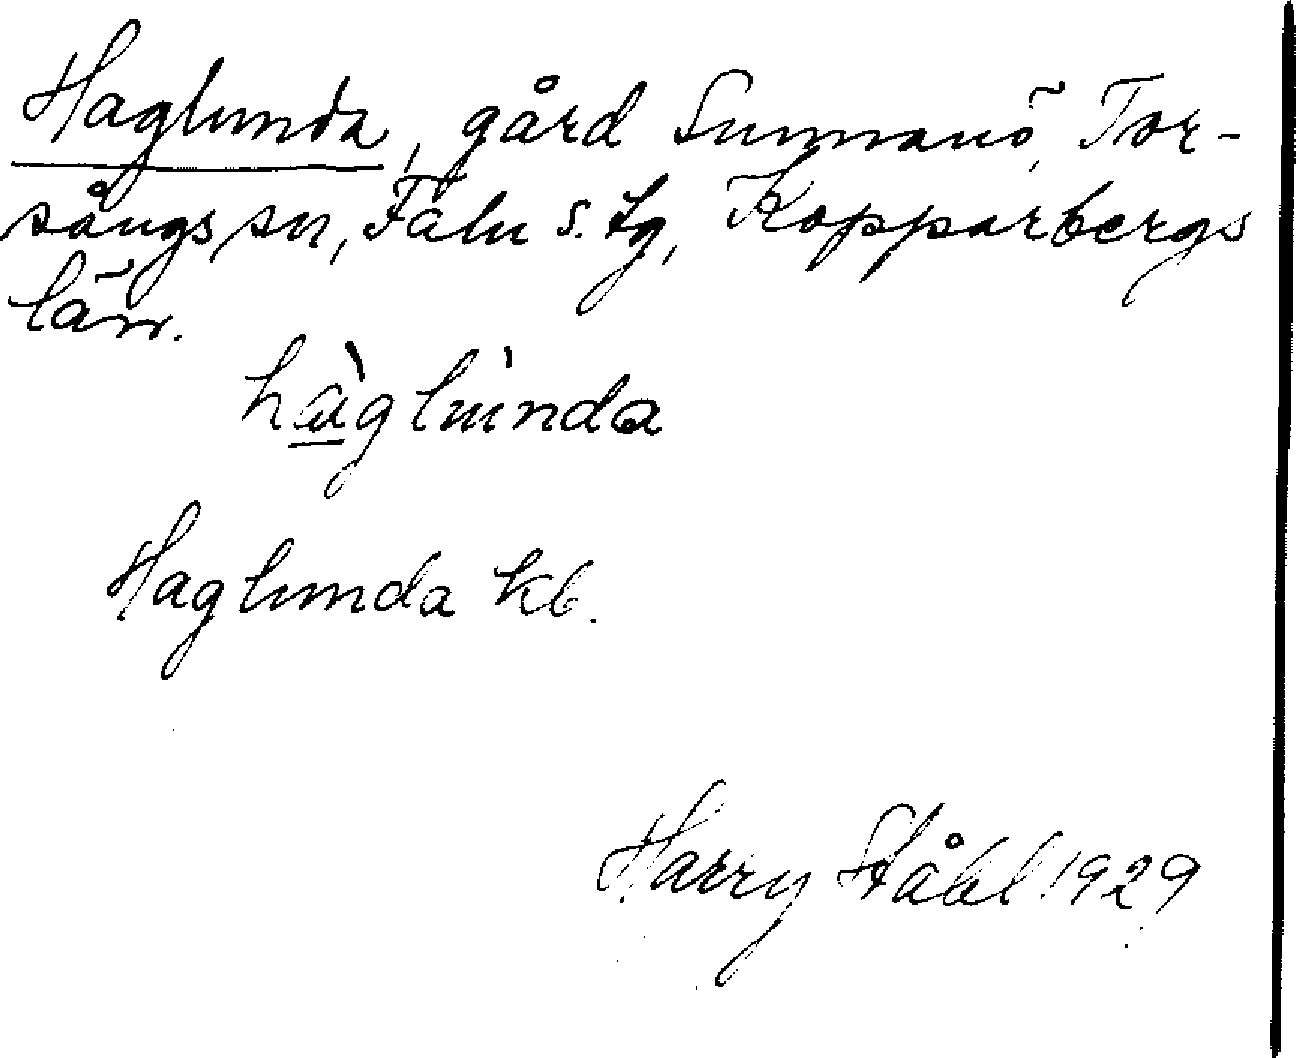 Haglunda, gård Sunnanö, Tor-
sångs sn, Falu s. tg, Kopparbergs
län.
hàglùnda
Haglunda kb.
Harry Ståhl 1929